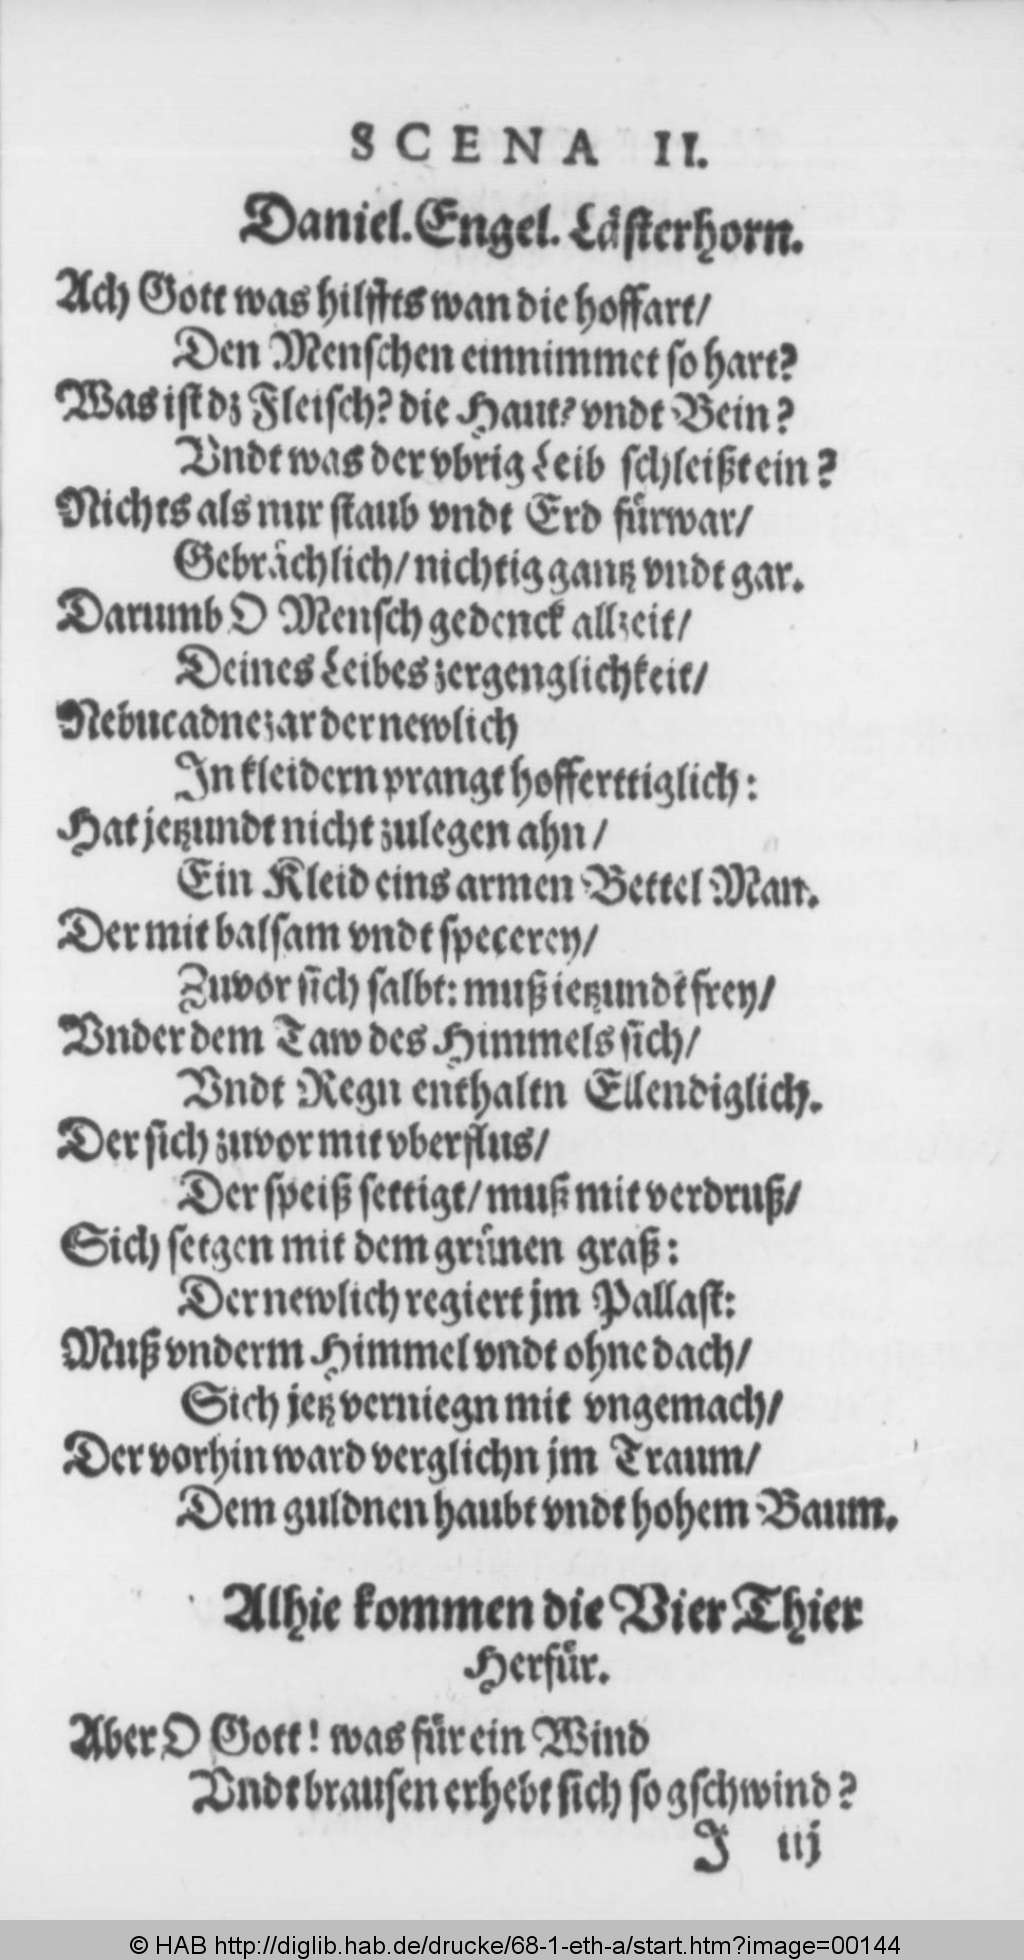 SCENA II.
Daniel. Engel. Lästerhorn.
Ach Gott was hilffts wan die hoffart/
Den Menschen einnimmet so hart?
Was ist dz Fleisch? die Haut? vndt Bein?
Vndt was der vbrig Leib schleißt ein?
Nichts als nur staub vndt Erd fürwar/
Gebrächlich/ nichtig gantz vndt gar.
Darumb O Mensch gedenck allzeit/
Deines Leibes zergenglichkeit/
Nebucadnezar der newlich
In kleidern prangt hofferttiglich:
Hat jetzundt nicht zulegen ahn/
Ein Kleid eins armen Bettel Man.
Der mit balsam vndt specerey/
Zuvor sich salbt: muß ietzundt frey/
Vnder dem Taw des Himmels sich/
Vndt Regn enthaltn Ellendiglich.
Der sich zuvor mit vberflus/
Der speiß settigt/ muß mit verdruß/
Sich setgen mit dem grünen graß:
Der newlich regiert jm Pallast:
Muß vnderm Himmel vndt ohne dach/
Sich jetz verniegn mit vngemach/
Der vorhin ward verglichn jm Traum/
Dem guldnen haubt vndt hohem Baum.
Alhie kommen die Vier Thier
Herfür.
Aber O Gott! was für ein Wind
Vndt brausen erhebt sich so gschwind?
J iij
© HAB http://diglib.hab.de/drucke/68-1-eth-a/start.htm?image=00144